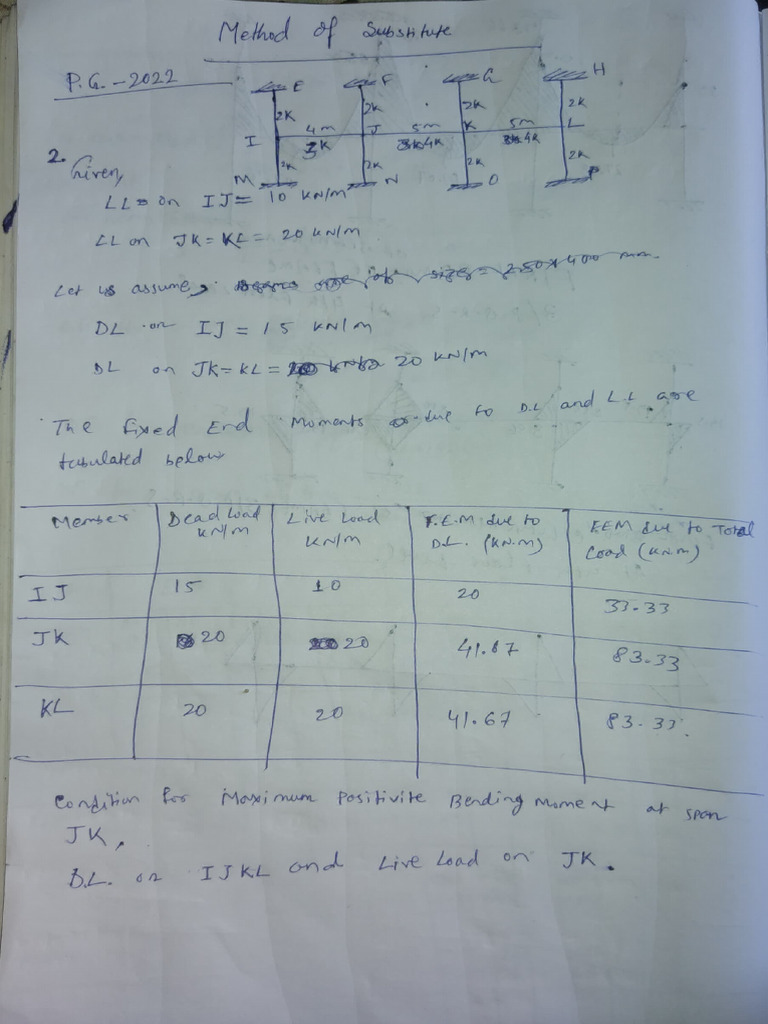 Method of Substitute
P.G. -2022
E F G H
2K 2K 2K 2K
I 4m J 5m K 5m L
3K 4K 4K
2K 2K 2K 2K
M N O P
2. Given,
LL on IJ = 10 KN/m
LL on JK = KL = 20 KN/m
Let us assume, size = 250 x 400 mm.
DL on IJ = 15 KN/m
DL on JK = KL = 20 KN/m
The Fixed End Moments due to D.L and L.L are
tabulated below
Member Dead Load KN/m Live Load KN/m F.E.M due to D.L. (KN.m) FEM due to Total Load (KN.m)
IJ 15 10 20 33.33
JK 20 20 41.67 83.33
KL 20 20 41.67 83.33.
Condition for Maximum Positivite Bending Moment at span
JK,
D.L. on IJKL and Live Load on JK.